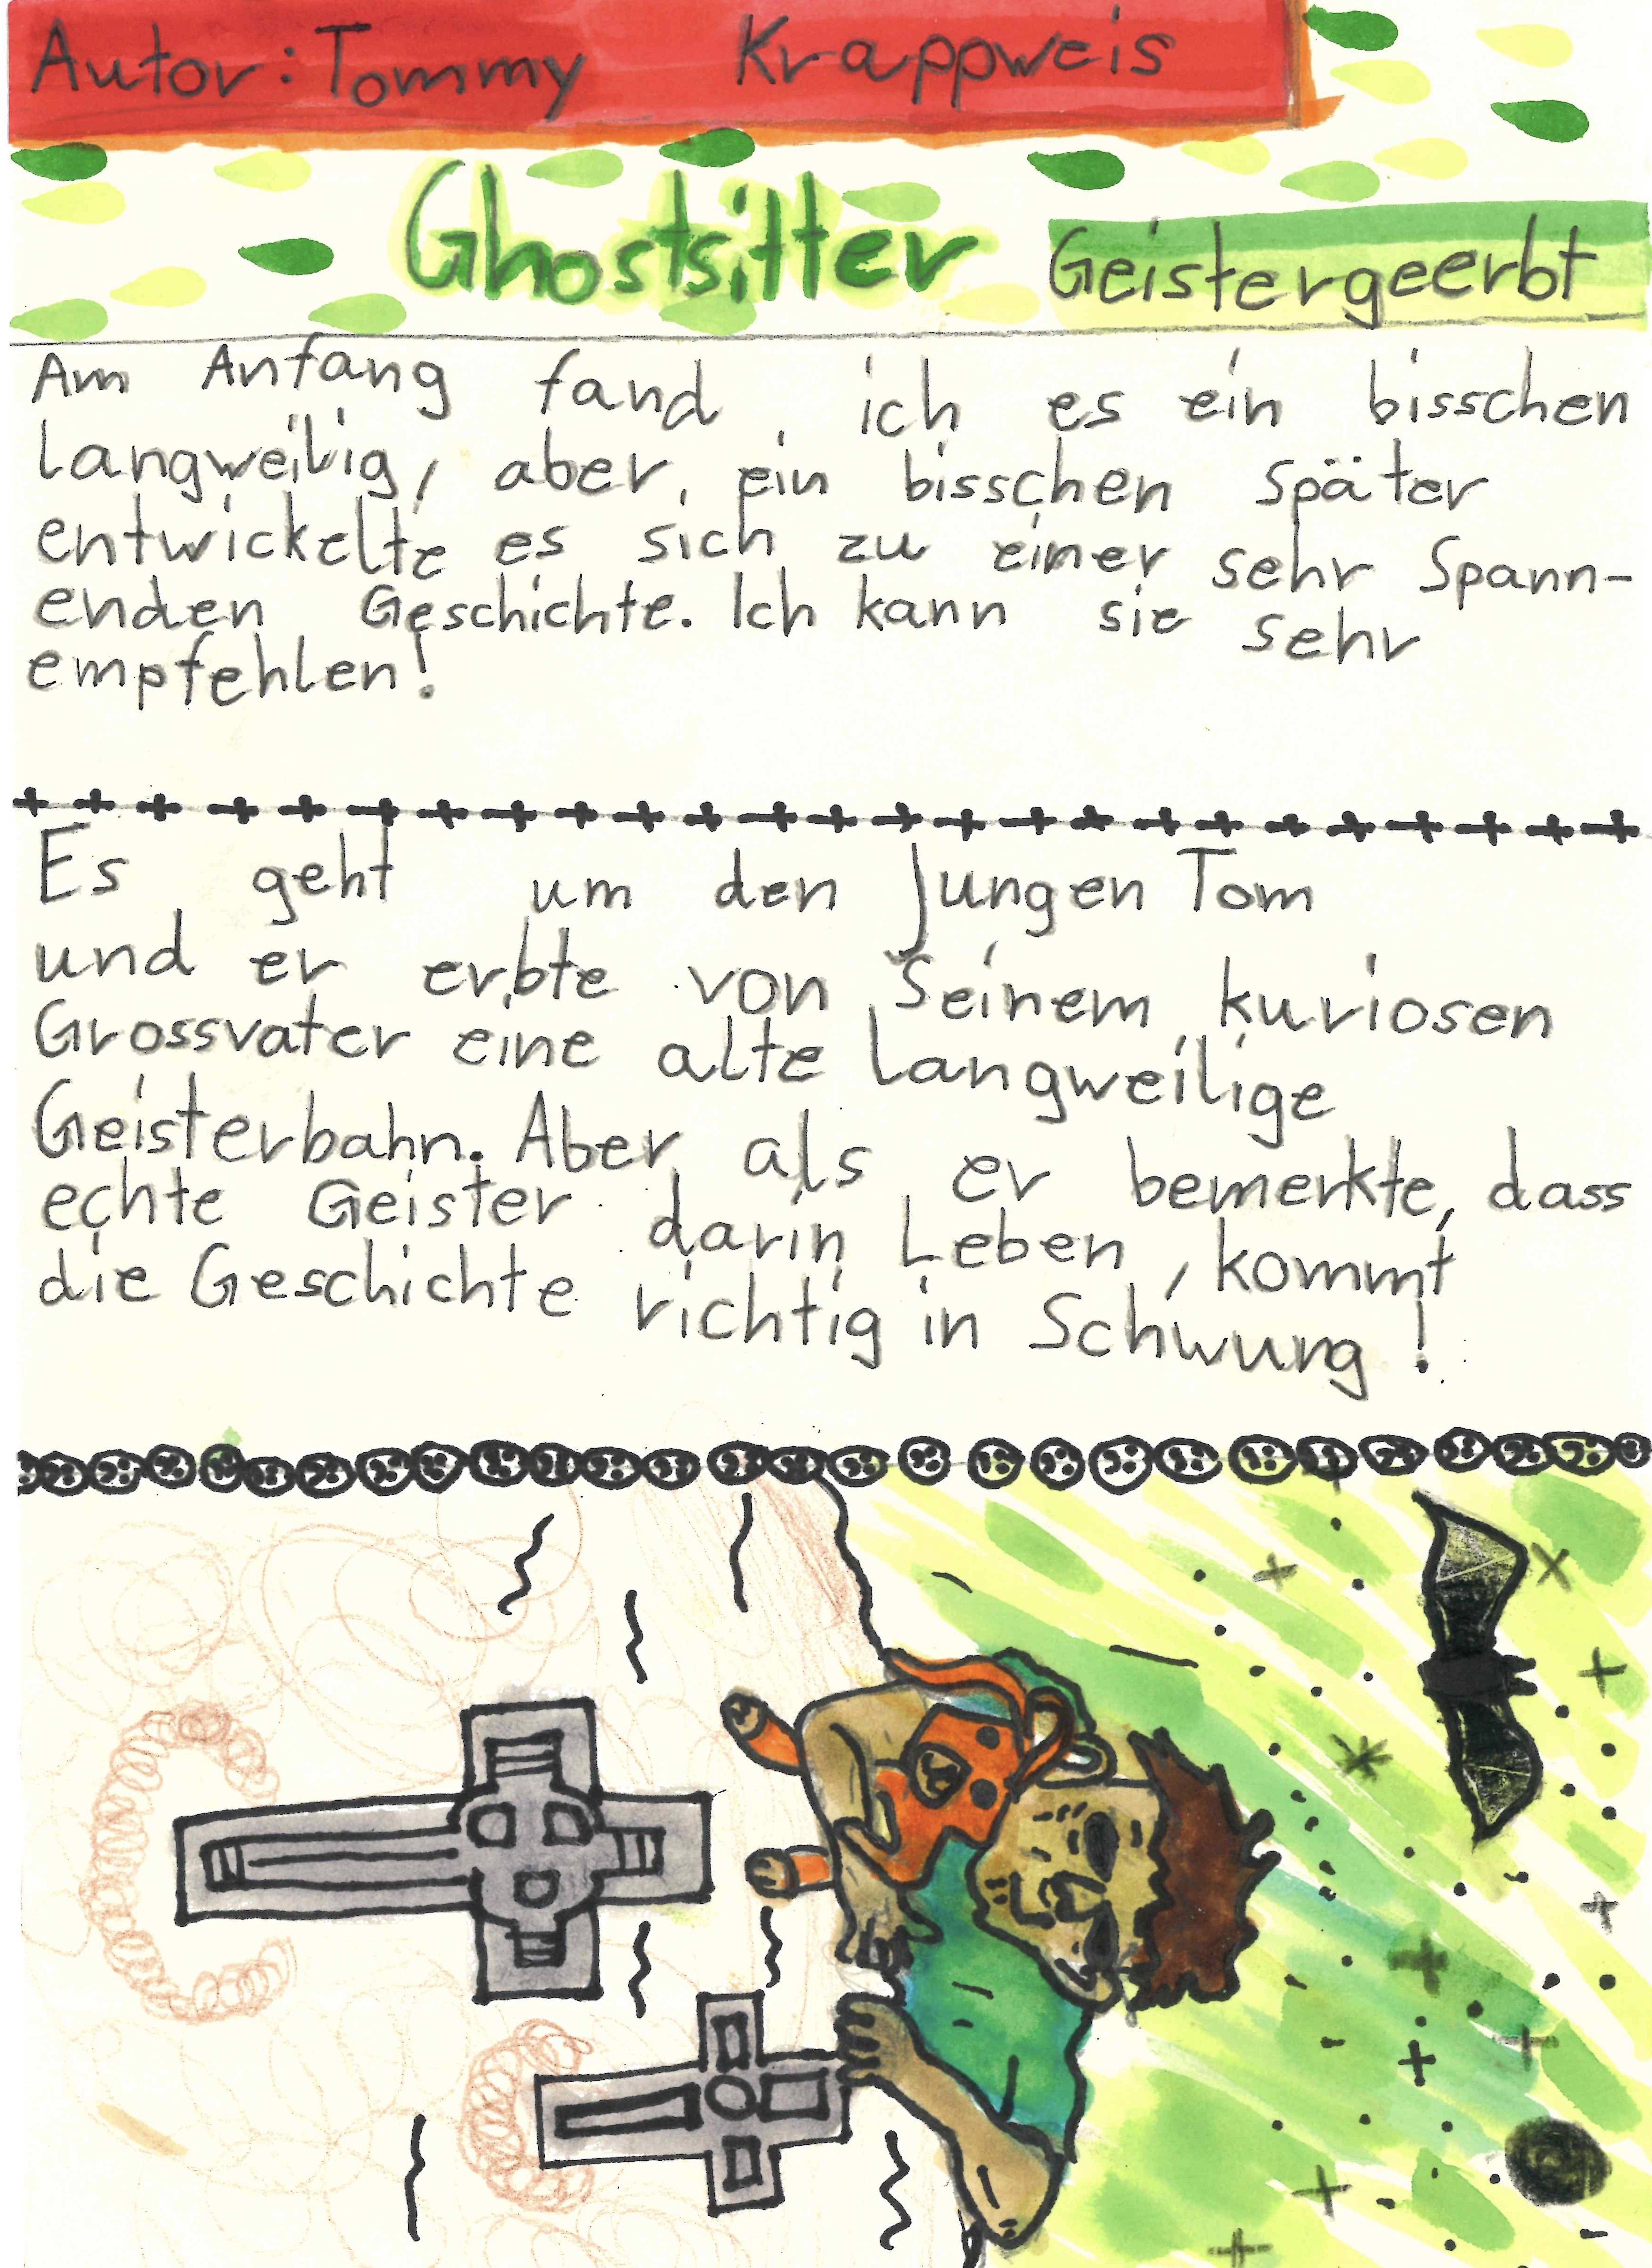 Autor: Tommy Krappweis
Ghostsitter Geistergeerbt
Am Anfang fand ich es ein bisschen
langweilig, aber ein bisschen später
entwickelte es sich zu einer sehr Spann-
enden Geschichte. Ich kann sie sehr
empfehlen!
Es geht um den Jungen Tom
und er erbte von Seinem kuriosen
Grossvater eine alte langweilige
Geisterbahn. Aber als er bemerkte, dass
echte Geister darin Leben, kommt
die Geschichte richtig in Schwung!